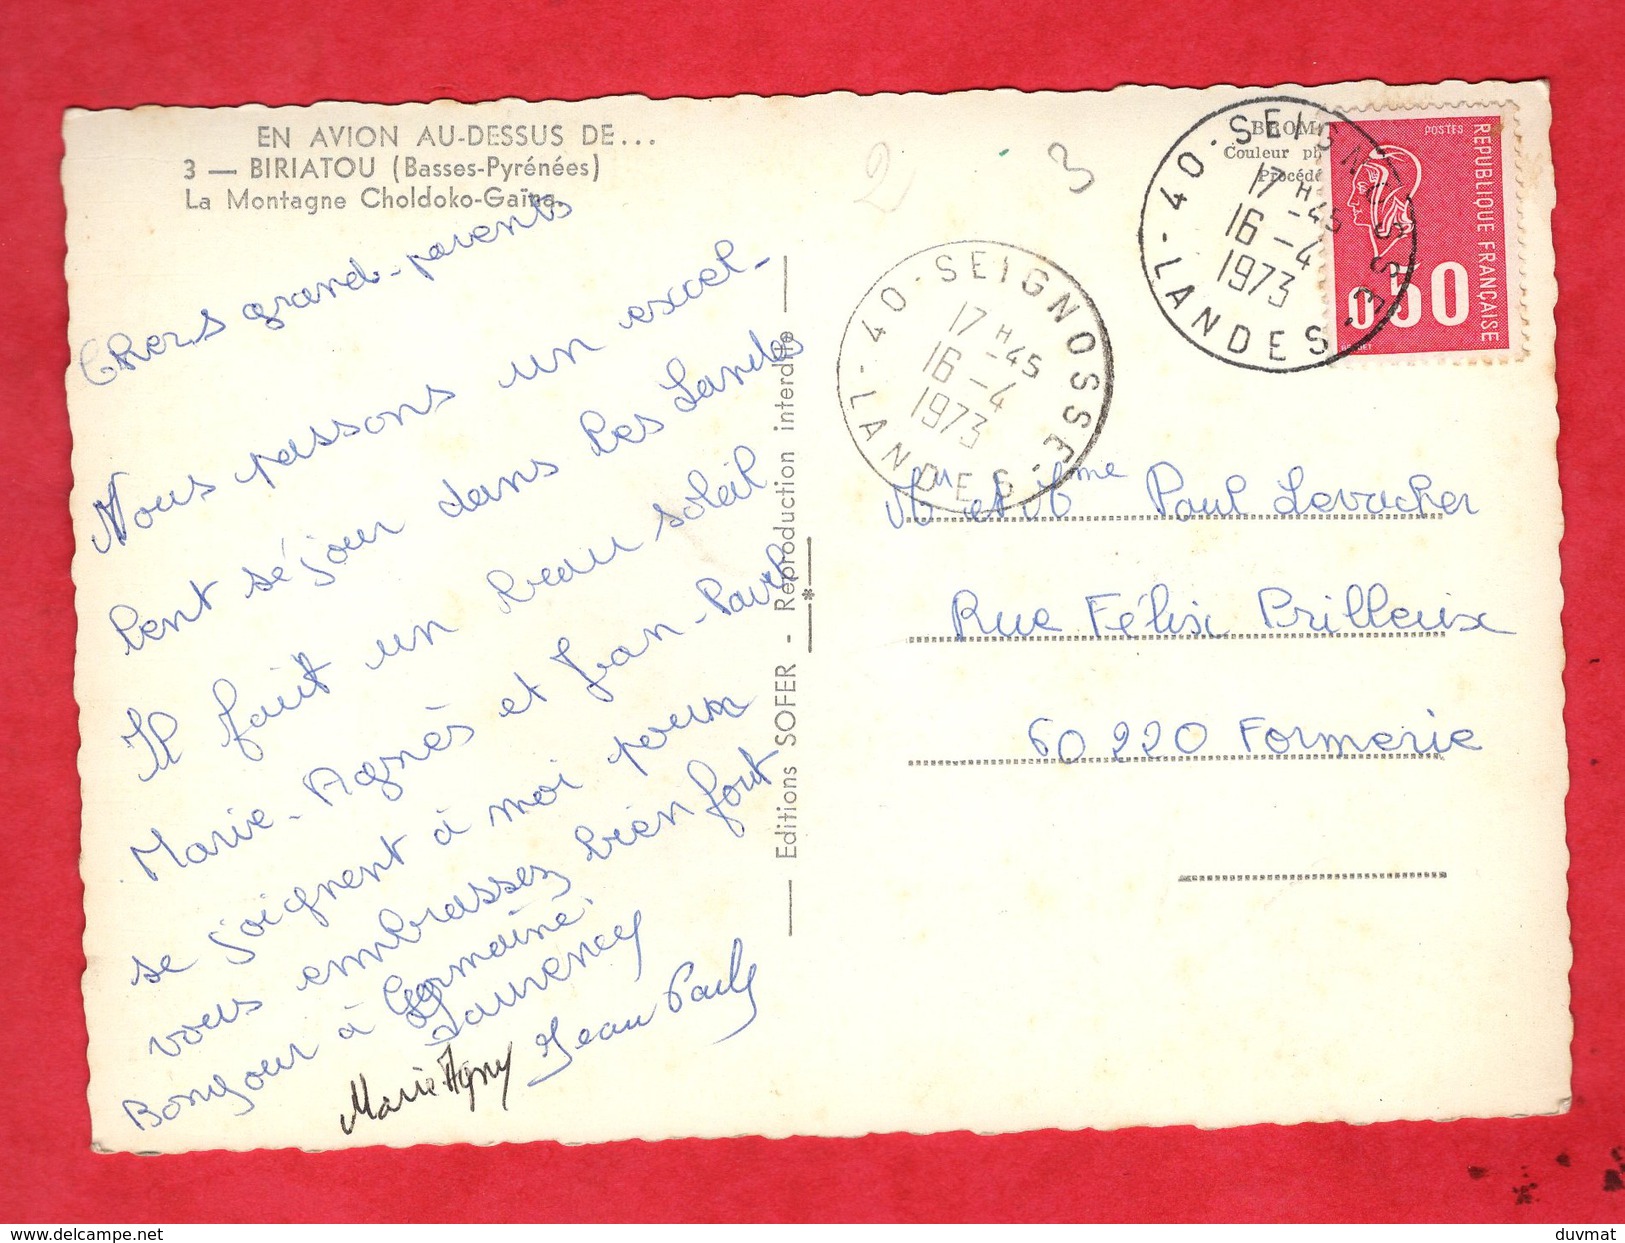 EN AVION AU-DESSUS DE...
3 — BIRIATOU (Basses-Pyrénées)
La Montagne Choldoko-Gaïna.
Chers grands-parents
Nous passons un excel-
lent séjour dans les Landes
Il fait un beau soleil
Marie-Agnès et Jean-Paul
se joignent à moi pour
vous embrasser bien fort
Bonjour à Germaine.
Laurency
Marie Agny
Jean Paul
Editions SOFER - Reproduction interdite
2
3
BROM
Couleur ph
Procédé
40 - SEIGNOSSE - LANDES -
17 H 45
16 - 4
1973
40 - SEIGNOSSE - LANDES -
17 H 45
16 - 4
1973
POSTES
REPUBLIQUE FRANÇAISE
0,50
Mr et Mme Paul Levacher
Rue Félix Prilleux
60220 Formerie
www.delcampe.net
duvmat